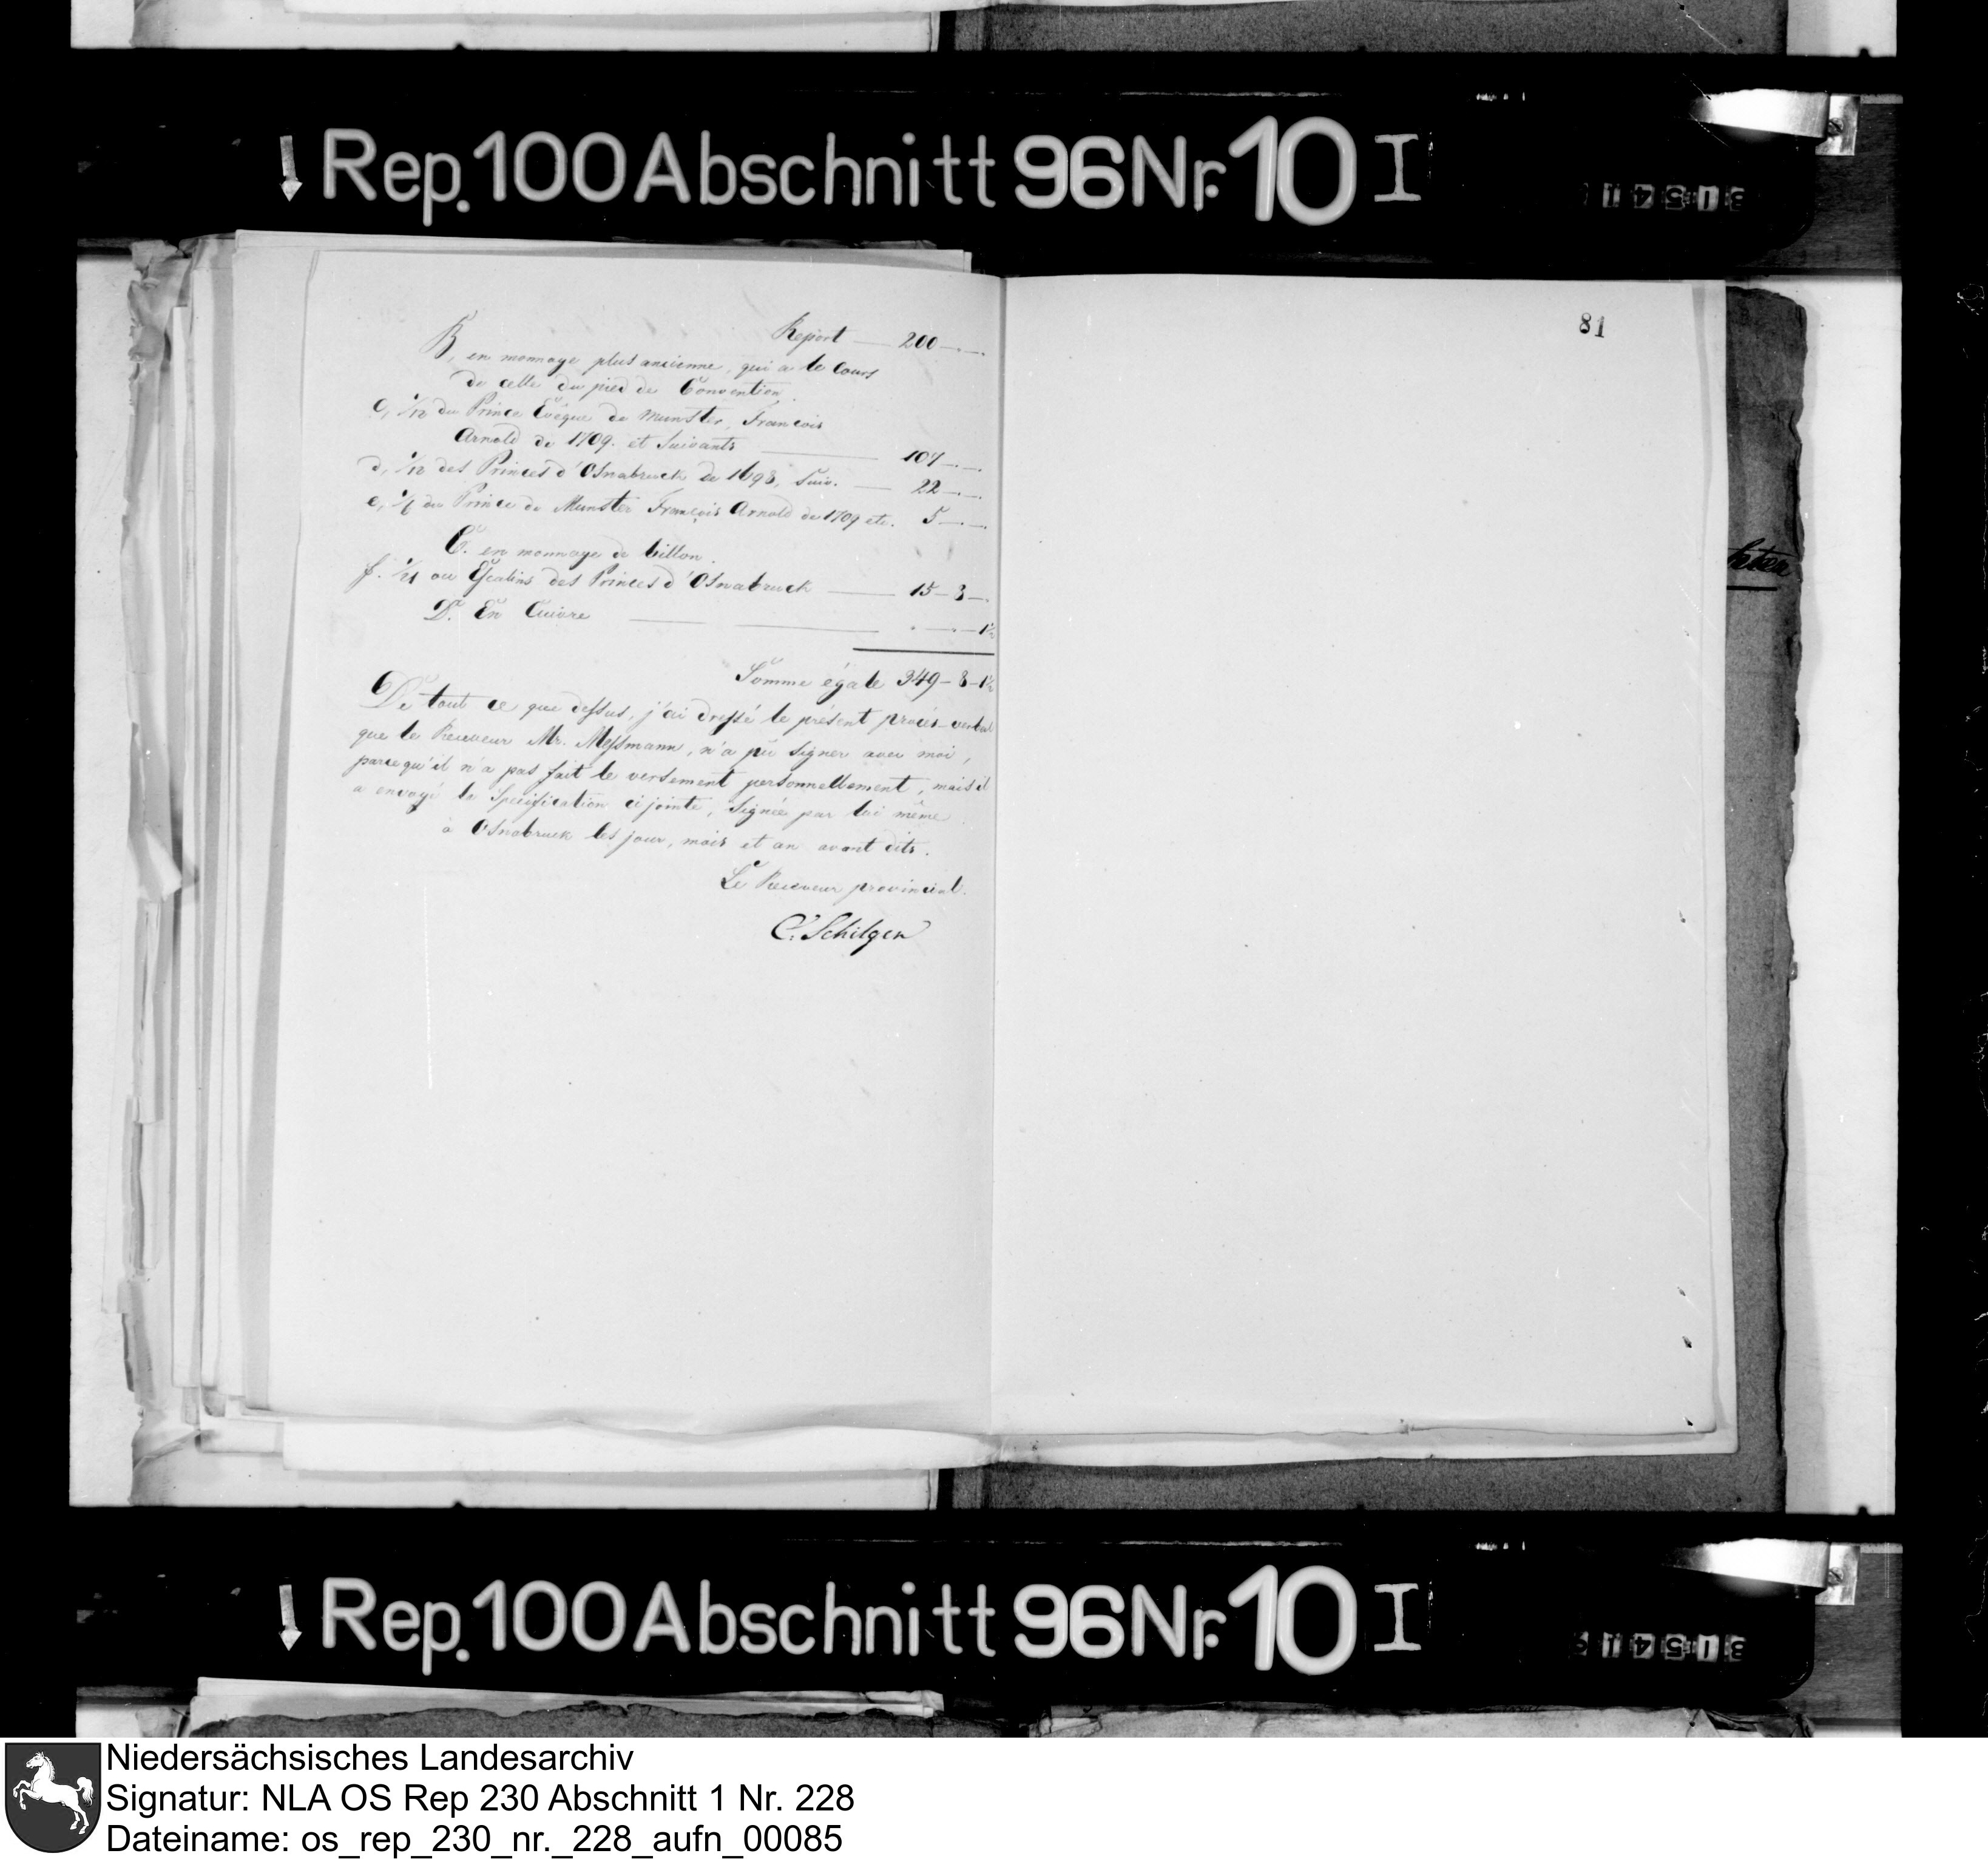 Rep. 100 Abschnitt 96 Nr. 10 I
81
Report — 200 —.—.
B, en monnaye plus ancienne, qui a le Cours
de celle du pied de Convention.
c, 1/12 du Prince Evêque de Munster, Francois
Arnold de 1709. et Suivants — 107 —.—.
d, 1/12 des Princes d'Osnabruck de 1698, Suiv. — 22 —.—.
e, 1/6 du Prince de Munster François Arnold de 1709 etc. 5 —.—.
C. en monnaye de billon.
f. 1/21 ou Escalins des Princes d'Osnabruck — 15 – 8 –.
D. En Cuivre — . —.— 1½
Somme égale 349 – 8 – 1½
De tout ce que dessus, j'ai dressé le présent procès-verbal
que le Receveur Mr. Messmann, n'a pu signer avec moi,
parcequ'il n'a pas fait le versement personnellement, mais il
a envoyé la Specification ci jointe, Signée par lui même.
à Osnabruck les jour, mois et an avant dits.
Le Receveur provincial.
C. Schilgen
Rep. 100 Abschnitt 96 Nr. 10 I
Niedersächsisches Landesarchiv
Signatur: NLA OS Rep 230 Abschnitt 1 Nr. 228
Dateiname: os_rep_230_nr._228_aufn_00085